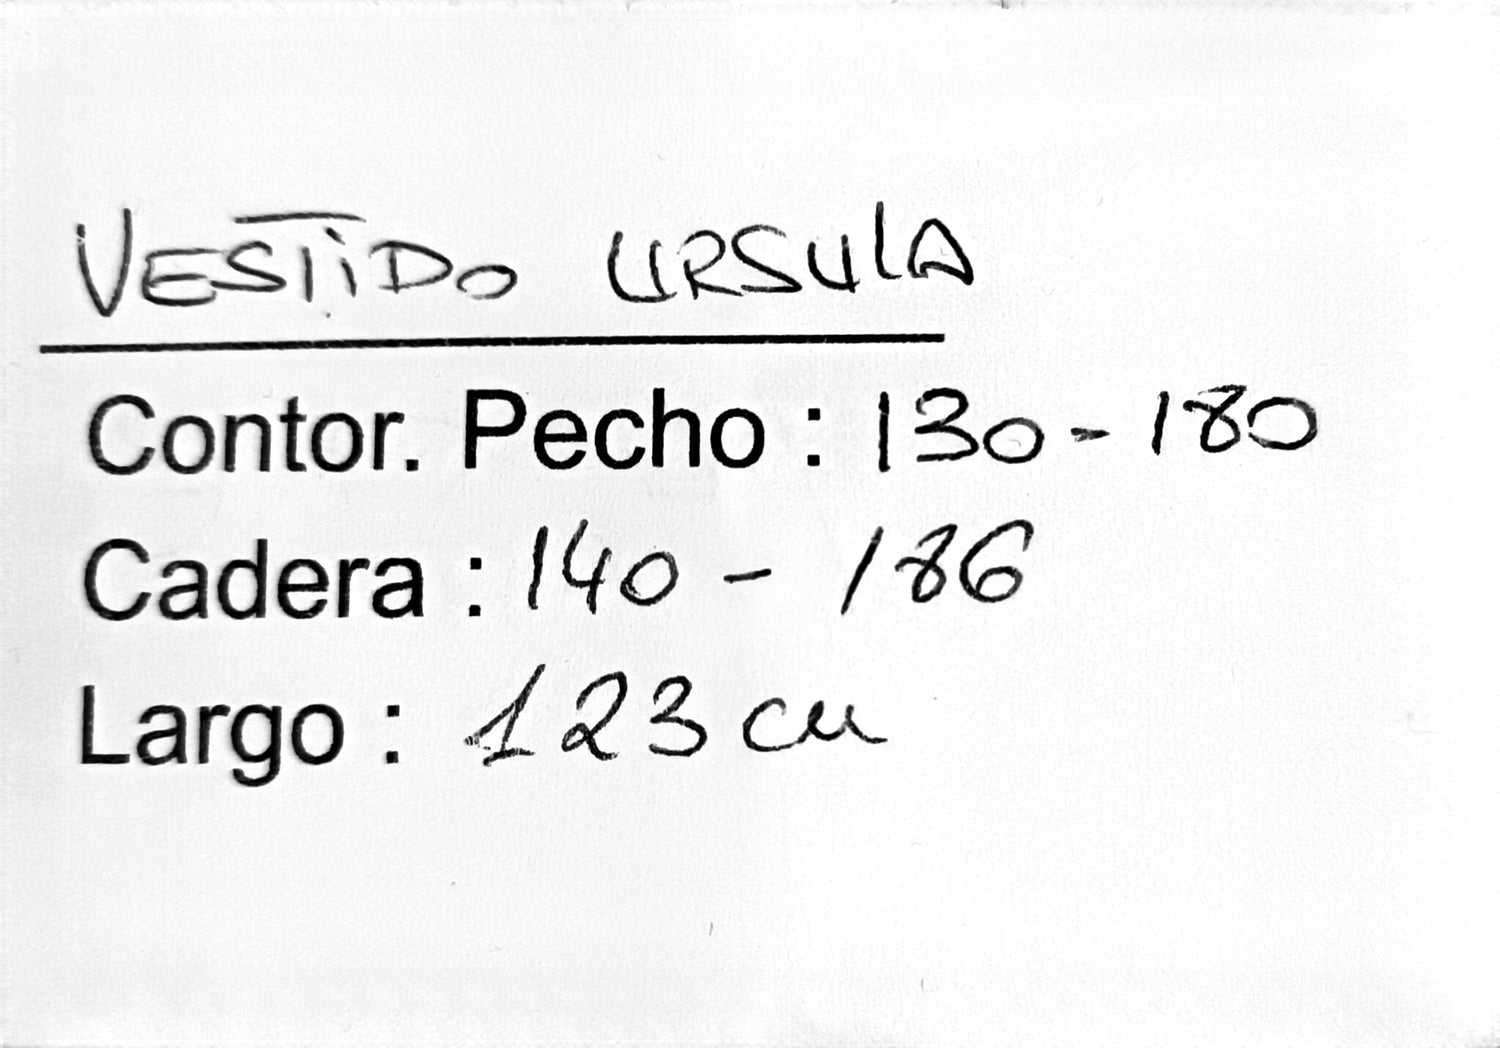 VESTiDo URSULA
Contor. Pecho : 130 - 180
Cadera : 140 - 186
Largo : 123 cm